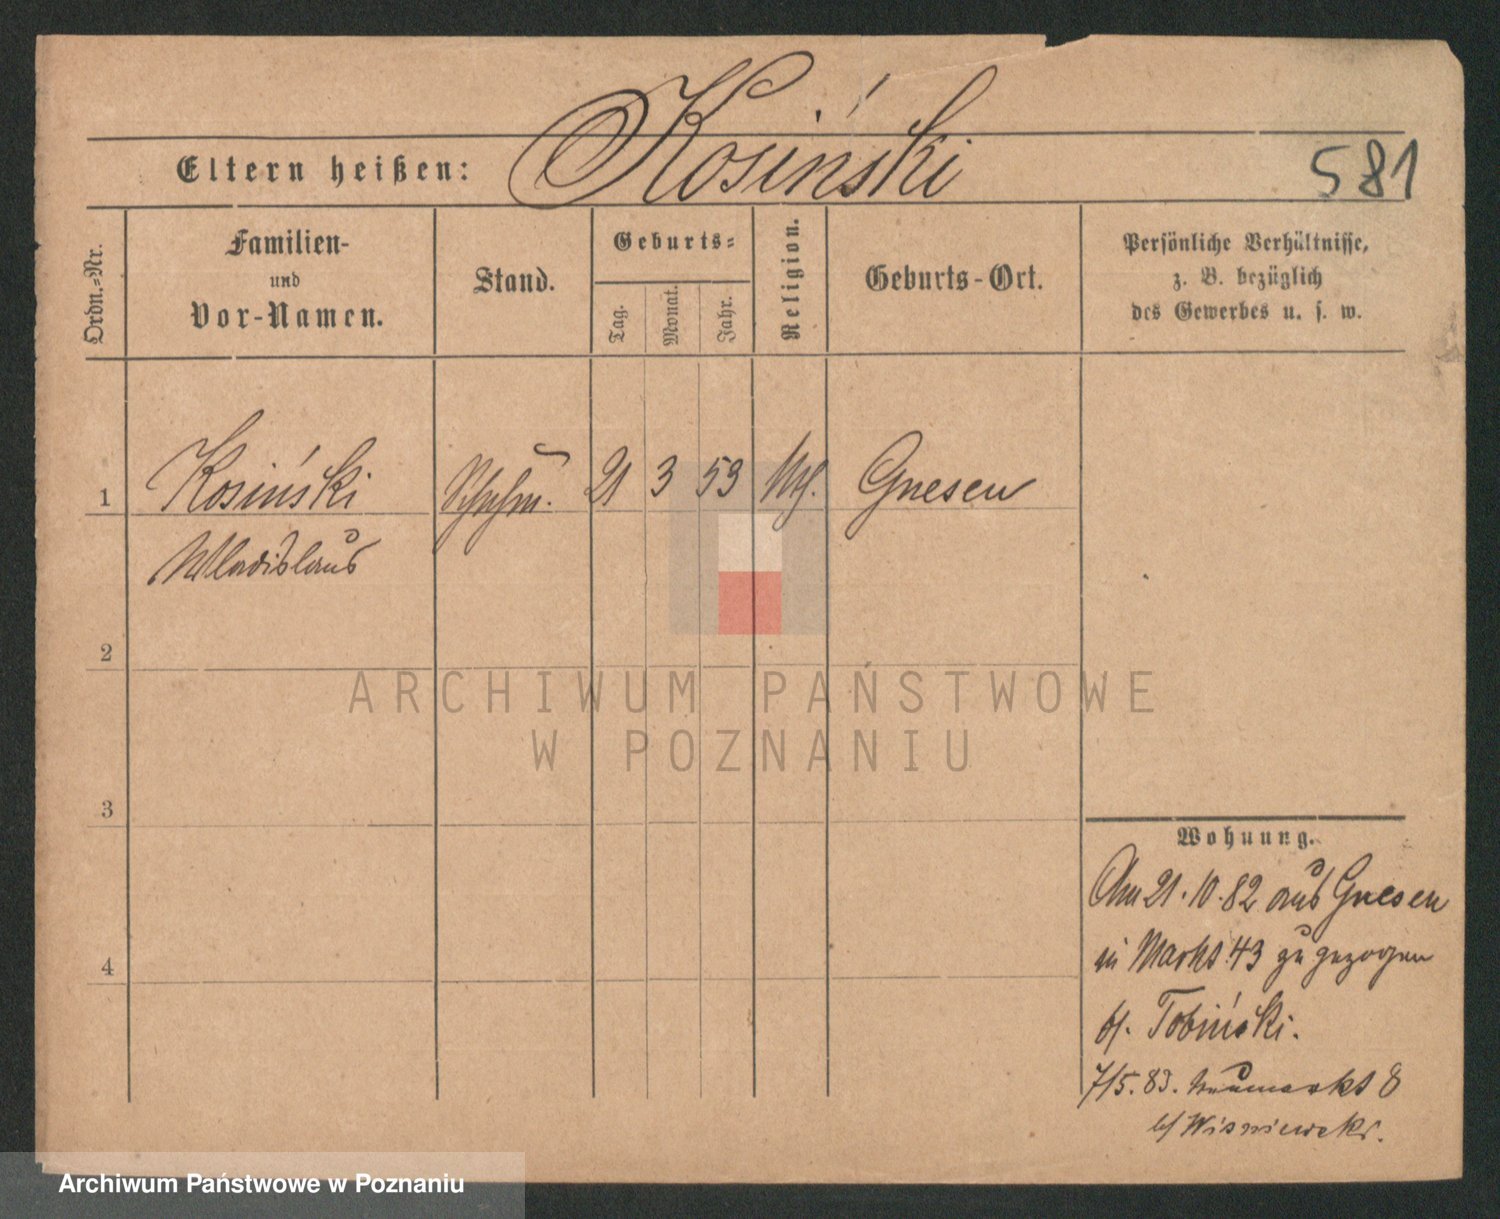 Eltern heißen: Kosiński
581
Ordn.-Nr.
Familien-
und
Vor-Namen.
Stand.
Geburts-
Tag.
Monat.
Jahr.
Religion.
Geburts-Ort.
Persönliche Verhältnisse,
z. B. bezüglich
des Gewerbes u. s. w.
1 Kosiński 21 3 53 Gnesen
Wladislaus
2
3
4
ARCHIWUM PAŃSTWOWE
W POZNANIU
Wohnung.
Am 21.10.82 aus Gnesen
in Markt 43 zugezogen
b/. Tobiński.
7/5. 83. Neumarkt 8
b/ Wisniewski.
Archiwum Państwowe w Poznaniu